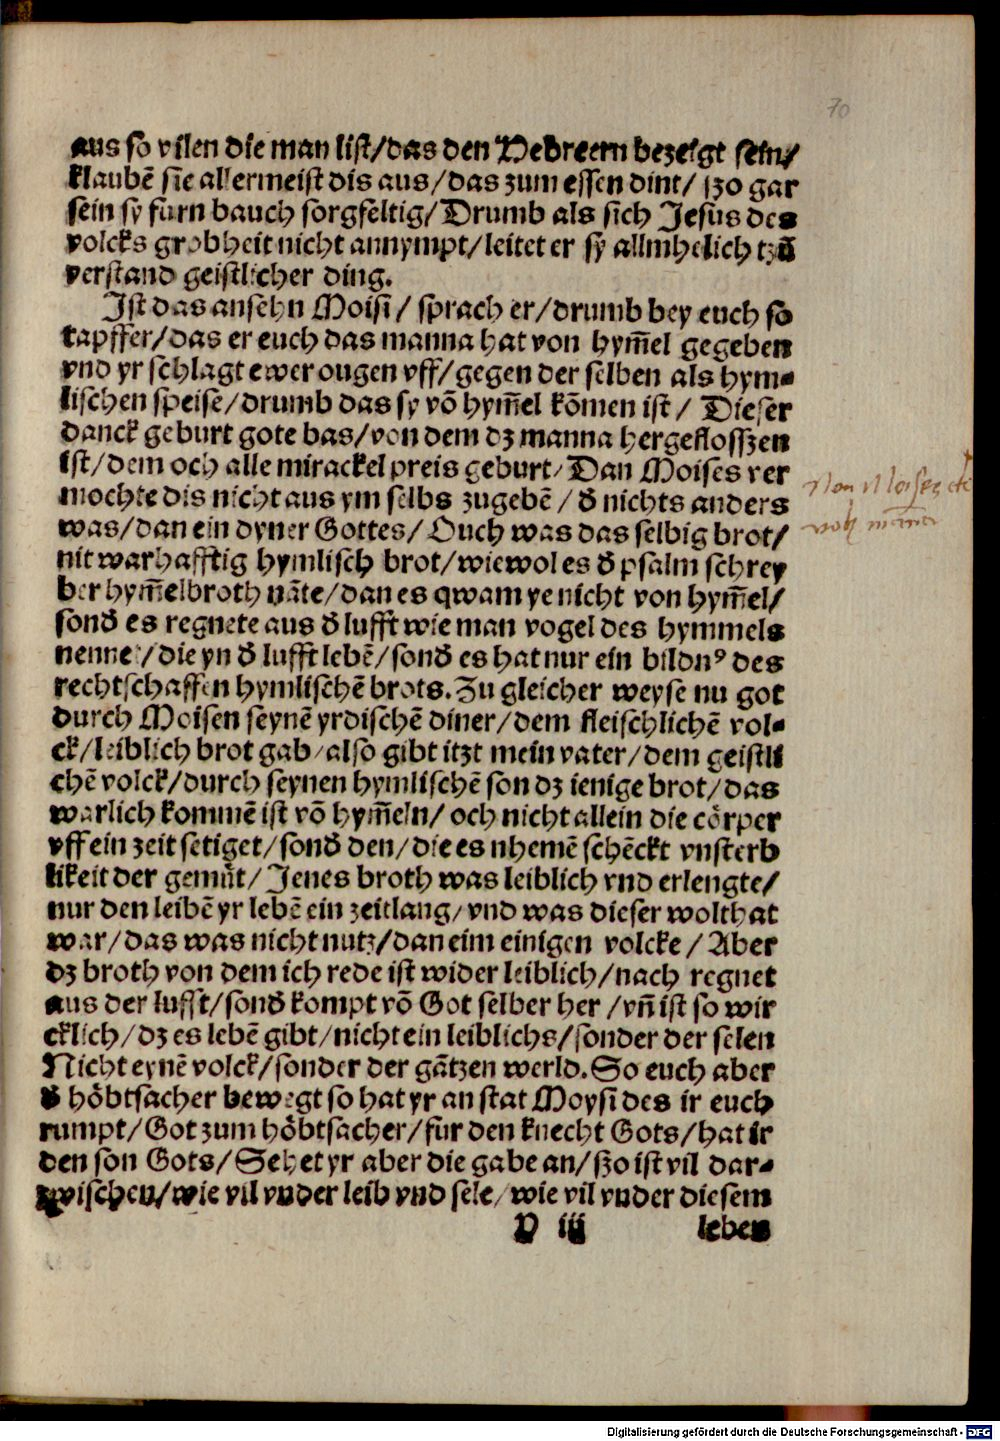 70
aus so vilen die man list/das den Hebreern bezeigt sein/
klaubē sie allermeist dis aus/das zum essen dint/ yzo gar
sein sy furn bauch sorgfeltig/Drumb als sich Jesus des
volcks grobheit nicht annympt/leitet er sy allmhelich tzū
verstand geistlicher ding.
Ist das ansehn Moisi/ sprach er/drumb bey euch so
tapffer/das er euch das manna hat von hym̄el gegeben
vnd yr schlagt ewer ougen vff/gegen der selben als hym-
lischen speise/drumb das sy vō hym̄el kōmen ist/ Dieser
danck geburt gote bas/von dem dz manna hergeflosszen
ist/dem och alle mirackel preis geburt/Dan Moises ver
mochte dis nicht aus ym selbs zugebē/ď nichts anders
was/dan ein dyner Gottes/Ouch was das selbig brot/
nit warhafftig hymlisch brot/wiewol es ď psalm schrey
ber hym̄elbroth nāte/dan es qwam ye nicht von hym̄el/
sonď es regnete aus ď lufft wie man vogel des hymmels
nennet/die yn ď lufft lebē/sonď es hat nur ein bildnꝰ des
rechtschaffen hymlischē brots.Zu gleicher weyse nu got
durch Moisen seynē yrdischē diner/dem fleischlichē vol-
ck/leiblich brot gab/also gibt itzt mein vater/dem geistli
chē volck/durch seynen hymlischē son dz ienige brot/das
warlich kommē ist vō hym̄eln/ och nicht allein die cörper
vff ein zeit setiget/sonď den/die es nhemē schēckt vnsterb
likeit der gemüt/Jenes broth was leiblich vnd erlengte/
nur den leibē yr lebē ein zeitlang/vnd was dieser wolthat
war/das was nicht nutz/dan eim einigen volcke/Aber
dz broth von dem ich rede ist wider leiblich/nach regnet
aus der lufft/sonď kompt vō Got selber her/vn̄ ist so wir
cklich/dz es lebē gibt/nicht ein leiblichs/sonder der selen
Nicht eynē volck/sonder der gātzen werld.So euch aber
ď höbtsacher bewegt so hat yr an stat Moysi des ir euch
rumpt/Got zum höbtsacher/fur den knecht Gots/hat ir
den son Gots/Sehet yr aber die gabe an/szo ist vil dar-
zwischen/wie vil vnder leib vnd sele/wie vil vnder diesem
H iij leben
Digitalisierung gefördert durch die Deutsche Forschungsgemeinschaft - DFG